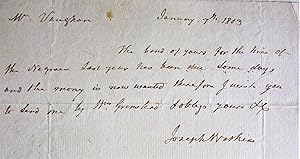 Mr Vaughan January 7th 1803
The bond of yours for the hire of
the Negroes last year has been due some days
and the money is now wanted therefore I wish you
to send one by Wm Grinstead & oblige yours &c
Joseph Watkins